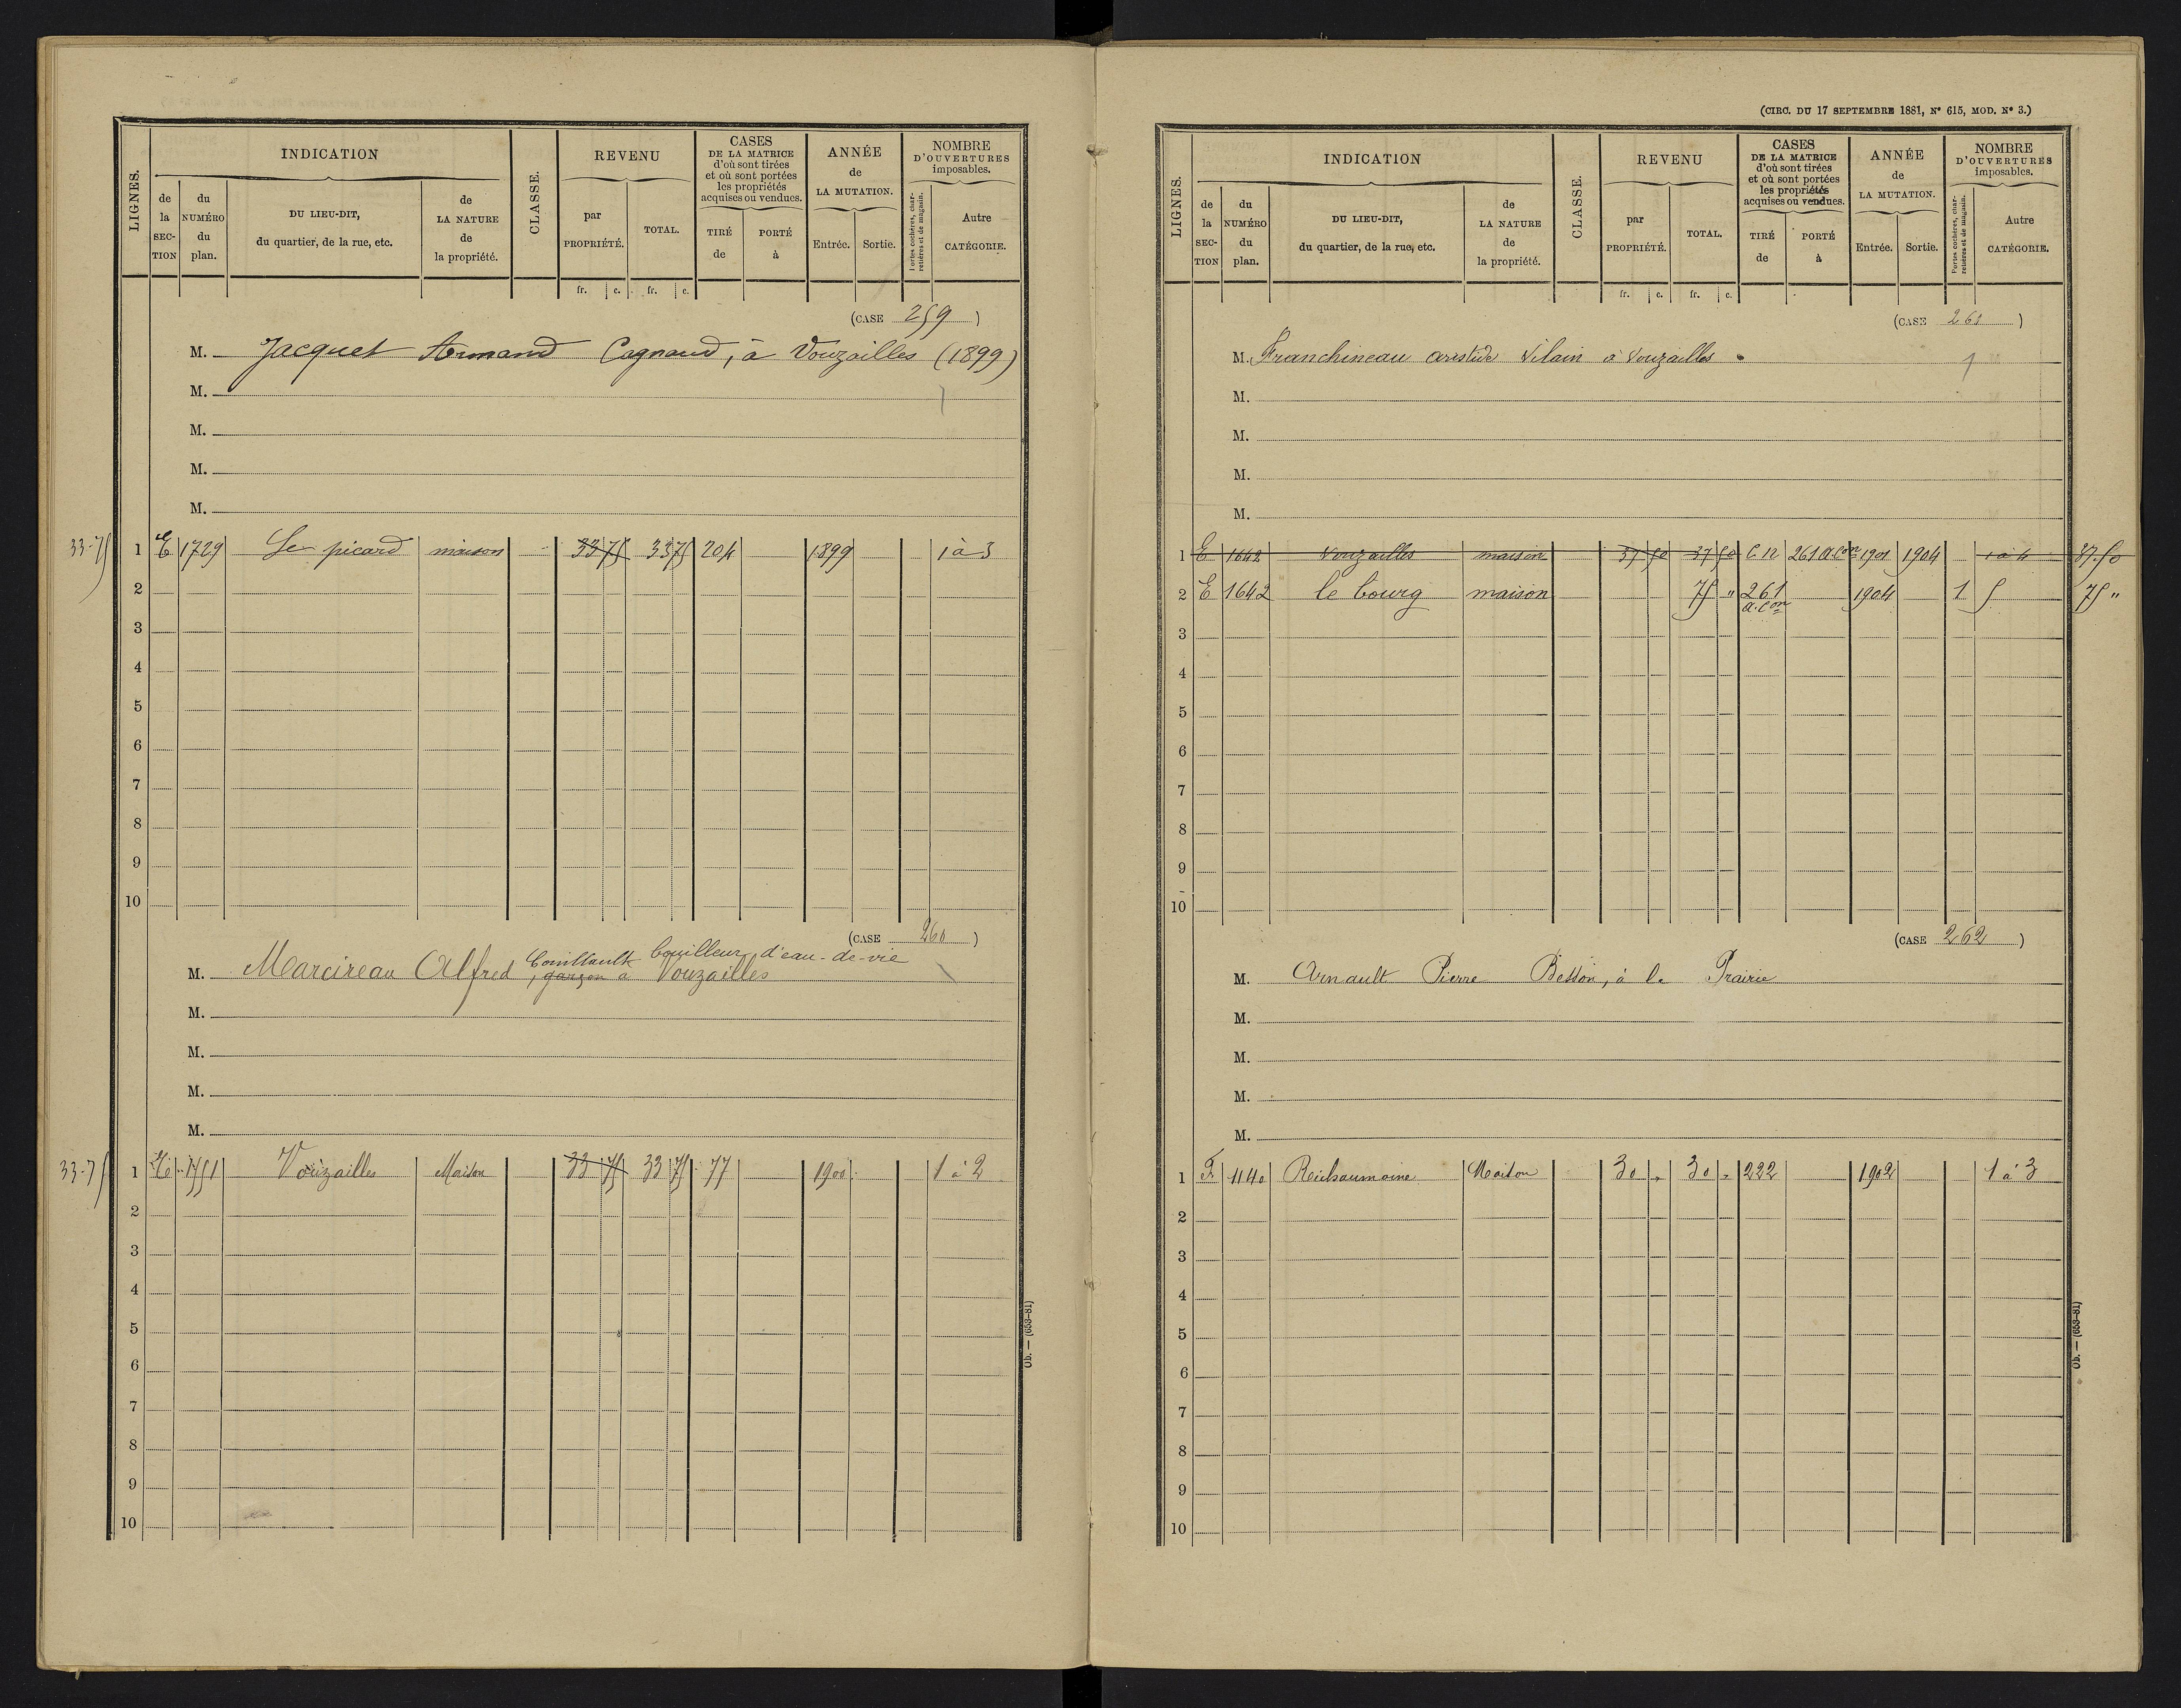 LIGNES.
INDICATION
de la SECTION
du NUMÉRO du plan.
DU LIEU-DIT, du quartier, de la rue, etc.
de LA NATURE de la propriété.
CLASSE.
REVENU
par PROPRIÉTÉ.
TOTAL.
fr. c. fr. c.
CASES DE LA MATRICE d'où sont tirées et où sont portées les propriétés acquises ou vendues.
TIRÉ de
PORTÉ à
ANNÉE de LA MUTATION.
Entrée. Sortie.
NOMBRE D'OUVERTURES imposables.
Portes cochères, charretières et de magasin.
Autre CATÉGORIE.
(CASE 259)
M. Jacquet Armand Cagnaud, à Vouzailles (1899)
M.
M.
M.
M.
33-75 1 E 1729 Le picard maison 33 75 33 75 204 1899 1 à 3
2
3
4
5
6
7
8
9
10
(CASE 260)
Couillault bouilleur d'eau-de-vie
M. Marcireau Alfred, garçon à Vouzailles
M.
M.
M.
M.
33-75 1 E 1751 Vouzailles Maison 33 75 33 75 77 1900 1 à 2
2
3
4
5
6
7
8
9
10
Ob. — (653-81)
(CIRC. DU 17 SEPTEMBRE 1881, N° 615, MOD. N° 3.)
LIGNES.
INDICATION
de la SECTION
du NUMÉRO du plan.
DU LIEU-DIT, du quartier, de la rue, etc.
de LA NATURE de la propriété.
CLASSE.
REVENU
par PROPRIÉTÉ.
TOTAL.
fr. c. fr. c.
CASES DE LA MATRICE d'où sont tirées et où sont portées les propriétés acquises ou vendues.
TIRÉ de
PORTÉ à
ANNÉE de LA MUTATION.
Entrée. Sortie.
NOMBRE D'OUVERTURES imposables.
Portes cochères, charretières et de magasin.
Autre CATÉGORIE.
(CASE 261)
M. Franchineau aristide Vilain à Vouzailles
M.
M.
M.
M.
1 E 1642 Vouzailles maison 37 50 37 50 C. n 261 a. con 1901 1904 1 à 4 37.50
2 E 1642 le bourg maison 75 " 261 a. con 1904 1 5 75 "
3
4
5
6
7
8
9
10
(CASE 262)
M. Arnault Pierre Besson, à la Prairie
M.
M.
M.
M.
1 F 1140 Maison 30 " 30 " 222 1902 1 à 3
2
3
4
5
6
7
8
9
10
Ob. — (653-81)